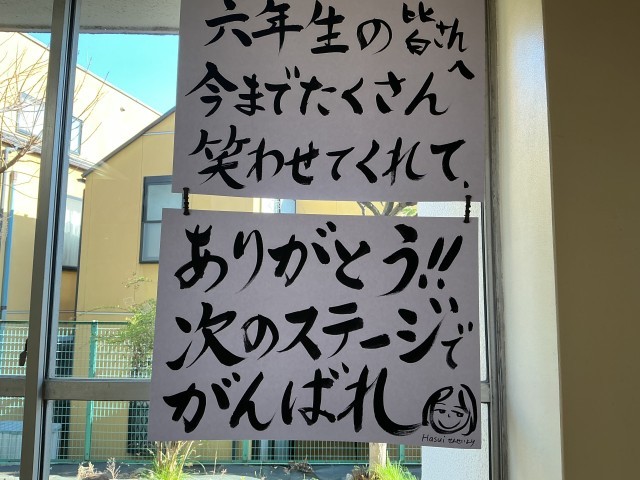 六年生の皆さんへ
今までたくさん
笑わせてくれて、
ありがとう!!
次のステージで
がんばれ
Hasui せんせいより